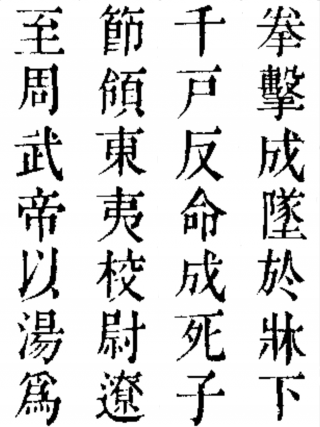 拳擊成墜於牀下
千戸反命成死子
節領東夷校尉遼
至周武帝以湯爲